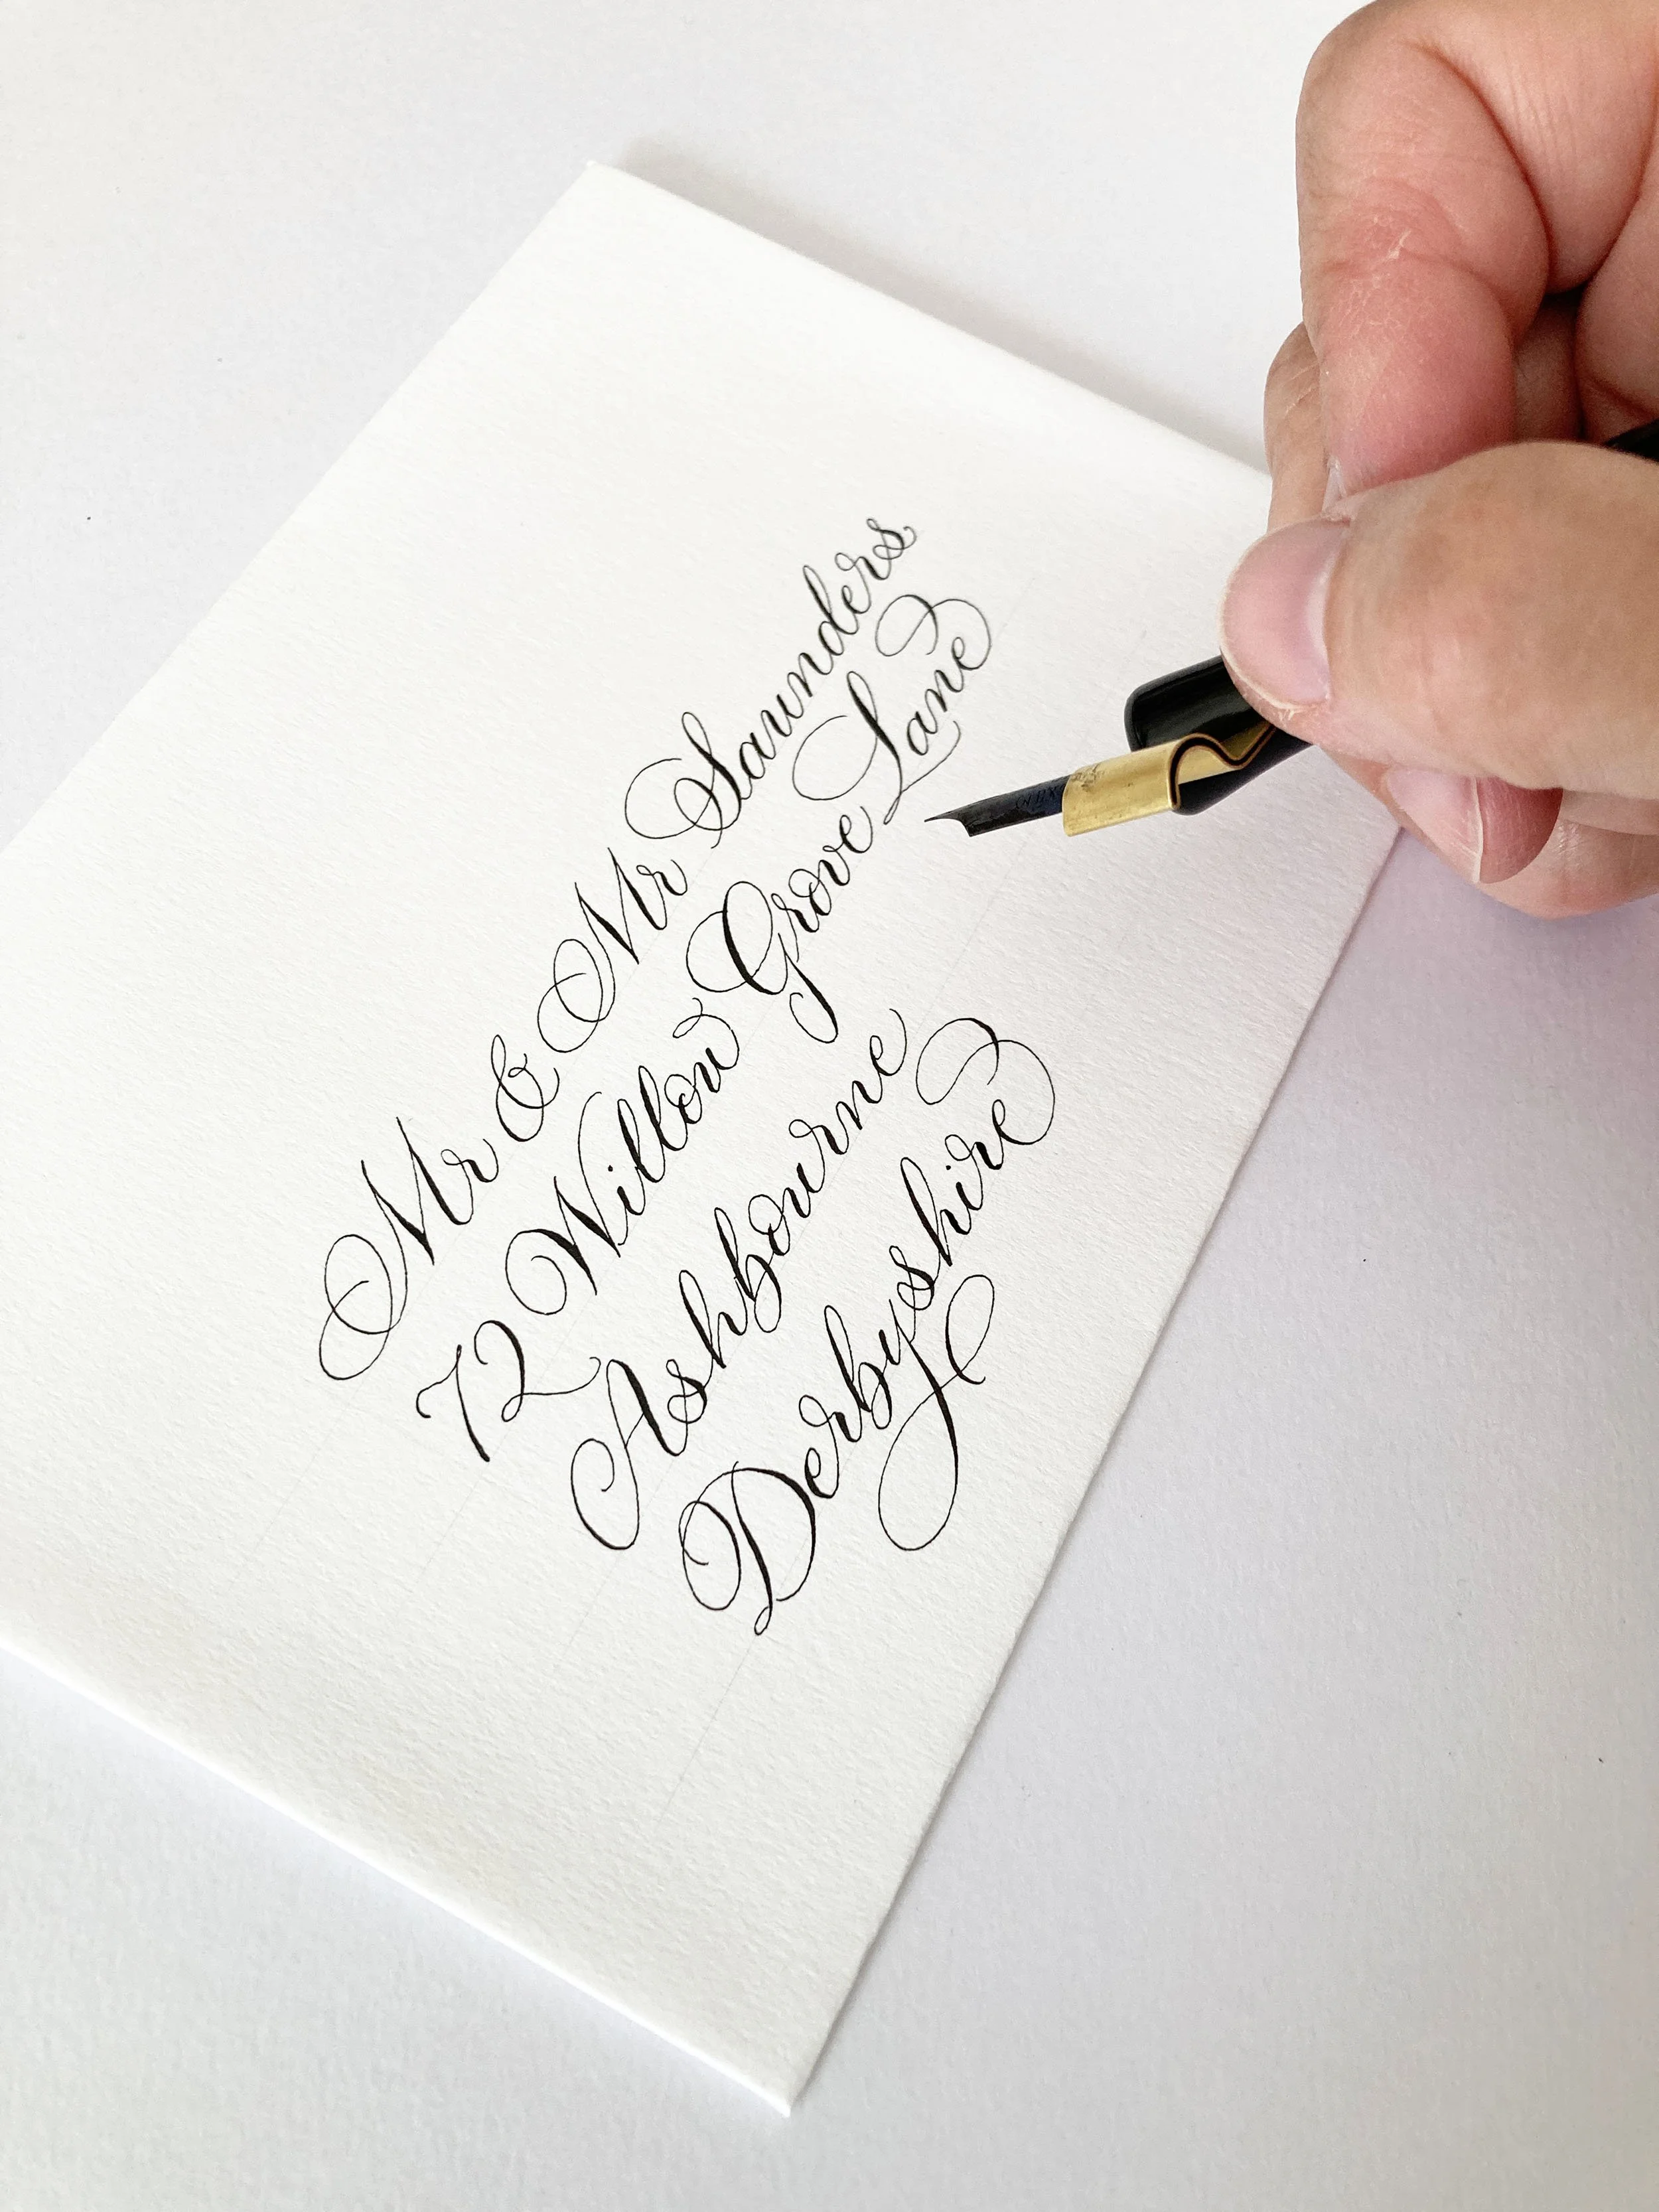 Mr & Mr Saunders
72 Willow Grove Lane
Ashbourne
Derbyshire